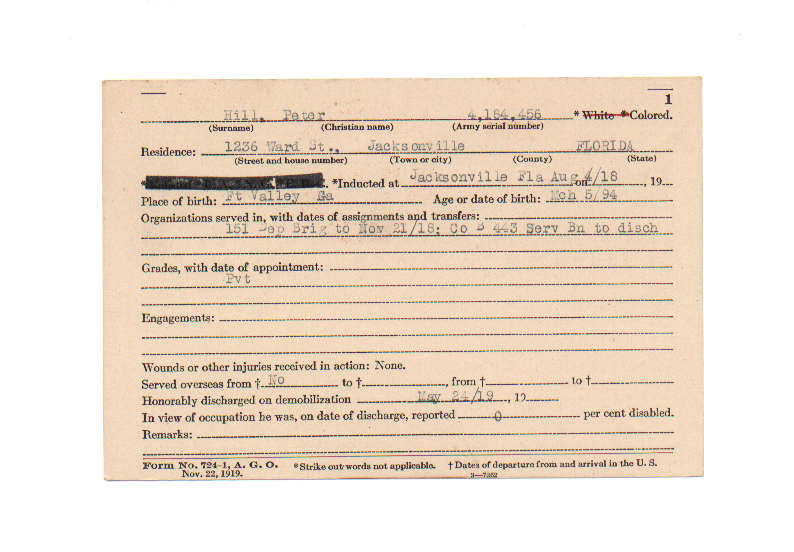 1
Hill, Peter 4,184,456 * White * Colored.
(Surname) (Christian name) (Army serial number)
Residence: 1236 Ward St., Jacksonville FLORIDA
(Street and house number) (Town or city) (County) (State)
* *Inducted at Jacksonville Fla Aug 4/18 on , 19
Place of birth: Ft Valley Ga Age or date of birth: Mch 5/94
Organizations served in, with dates of assignments and transfers:
151 Dep Brig to Nov 21/18; Co B 443 Serv Bn to disch
Grades, with date of appointment:
Pvt
Engagements:
Wounds or other injuries received in action: None.
Served overseas from † No to † , from † to †
Honorably discharged on demobilization May 24/19 , 19
In view of occupation he was, on date of discharge, reported 0 per cent disabled.
Remarks:
Form No. 724-1, A. G. O. *Strike out words not applicable. † Dates of departure from and arrival in the U. S.
Nov. 22, 1919. 3—7302